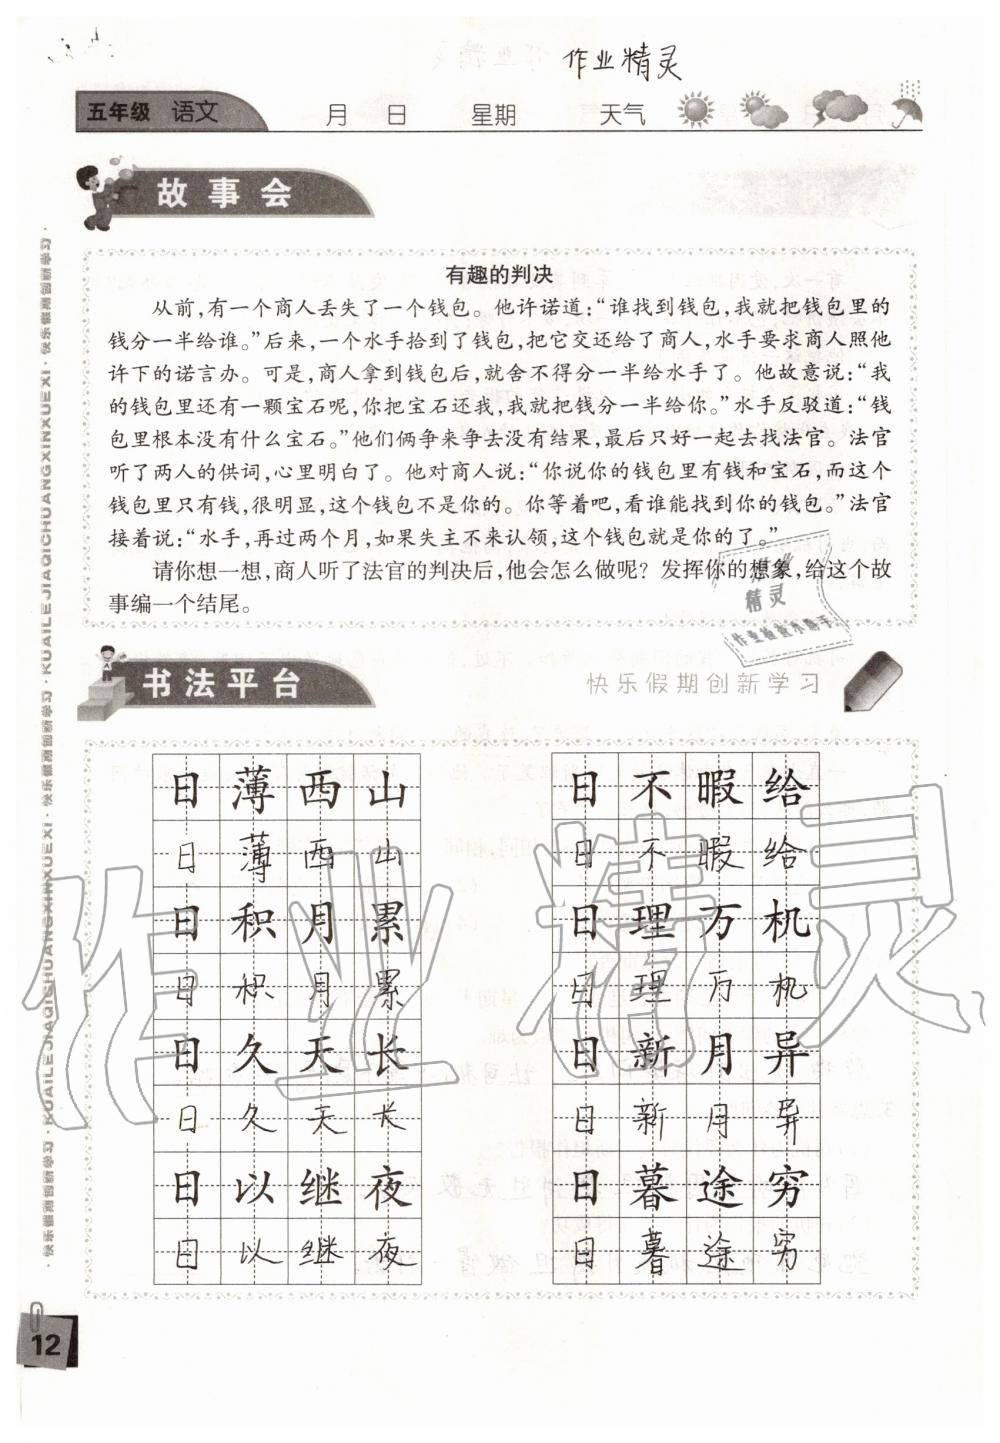 作业精灵
五年级 语文 月 日 星期 天气
故事会
有趣的判决
从前,有一个商人丢失了一个钱包。他许诺道:“谁找到钱包,我就把钱包里的
钱分一半给谁。”后来,一个水手拾到了钱包,把它交还给了商人,水手要求商人照他
许下的诺言办。可是,商人拿到钱包后,就舍不得分一半给水手了。他故意说:“我
的钱包里还有一颗宝石呢,你把宝石还我,我就把钱分一半给你。”水手反驳道:“钱
包里根本没有什么宝石。”他们俩争来争去没有结果,最后只好一起去找法官。法官
听了两人的供词,心里明白了。他对商人说:“你说你的钱包里有钱和宝石,而这个
钱包里只有钱,很明显,这个钱包不是你的。你等着吧,看谁能找到你的钱包。”法官
接着说:“水手,再过两个月,如果失主不来认领,这个钱包就是你的了。”
请你想一想,商人听了法官的判决后,他会怎么做呢?发挥你的想象,给这个故
事编一个结尾。
作业
精灵
作业检查小帮手
书法平台
快乐假期创新学习
日薄西山 日不暇给
日薄西山 日不暇给
日积月累 日理万机
日积月累 日理万机
日久天长 日新月异
日久天长 日新月异
日以继夜 日暮途穷
日以继夜 日暮途穷
作业精灵
·快乐假期创新学习·KUAILEJIAQICHUANGXINXUEXI·快乐假期创新学习·KUAILEJIAQICHUANGXINXUEXI·快乐假期创新学习·
12